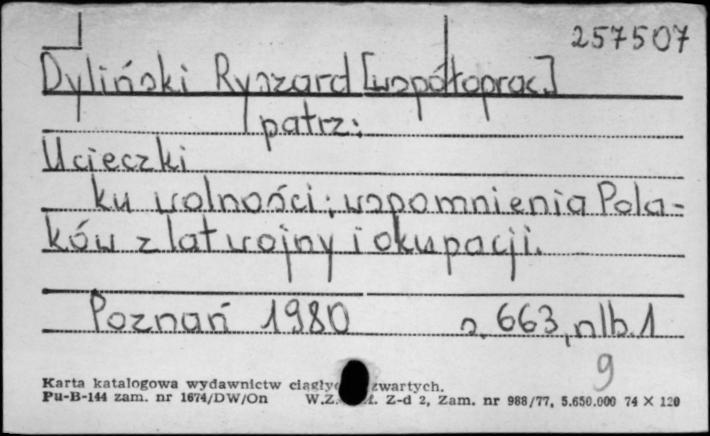 257507
Dyliński Ryszard [współoprac.]
patrz:
Ucieczki
ku wolności; wspomnienia Pola=
ków z lat wojny i okupacji.
Poznań 1980 s. 663, nlb. 1
9
Karta katalogowa wydawnictw zwartych.
Pu-B-144 zam. nr 1674/DW/On W.Z. Z-d 2, Zam. nr 988/77, 5.650.000 74 X 120